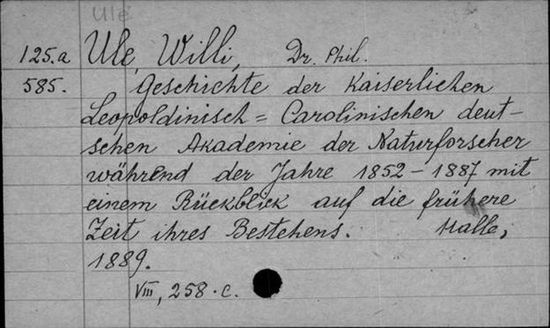 Ule
125.a Ule, Willi, Dr. Phil.
585. Geschichte der Kaiserlichen
Leopoldinisch = Carolinischen deut-
schen Akademie der Naturforscher
während der Jahre 1852 - 1887 mit
einem Rückblick auf die frühere
Zeit ihres Bestehens. Halle,
1889.
VIII, 258. c.